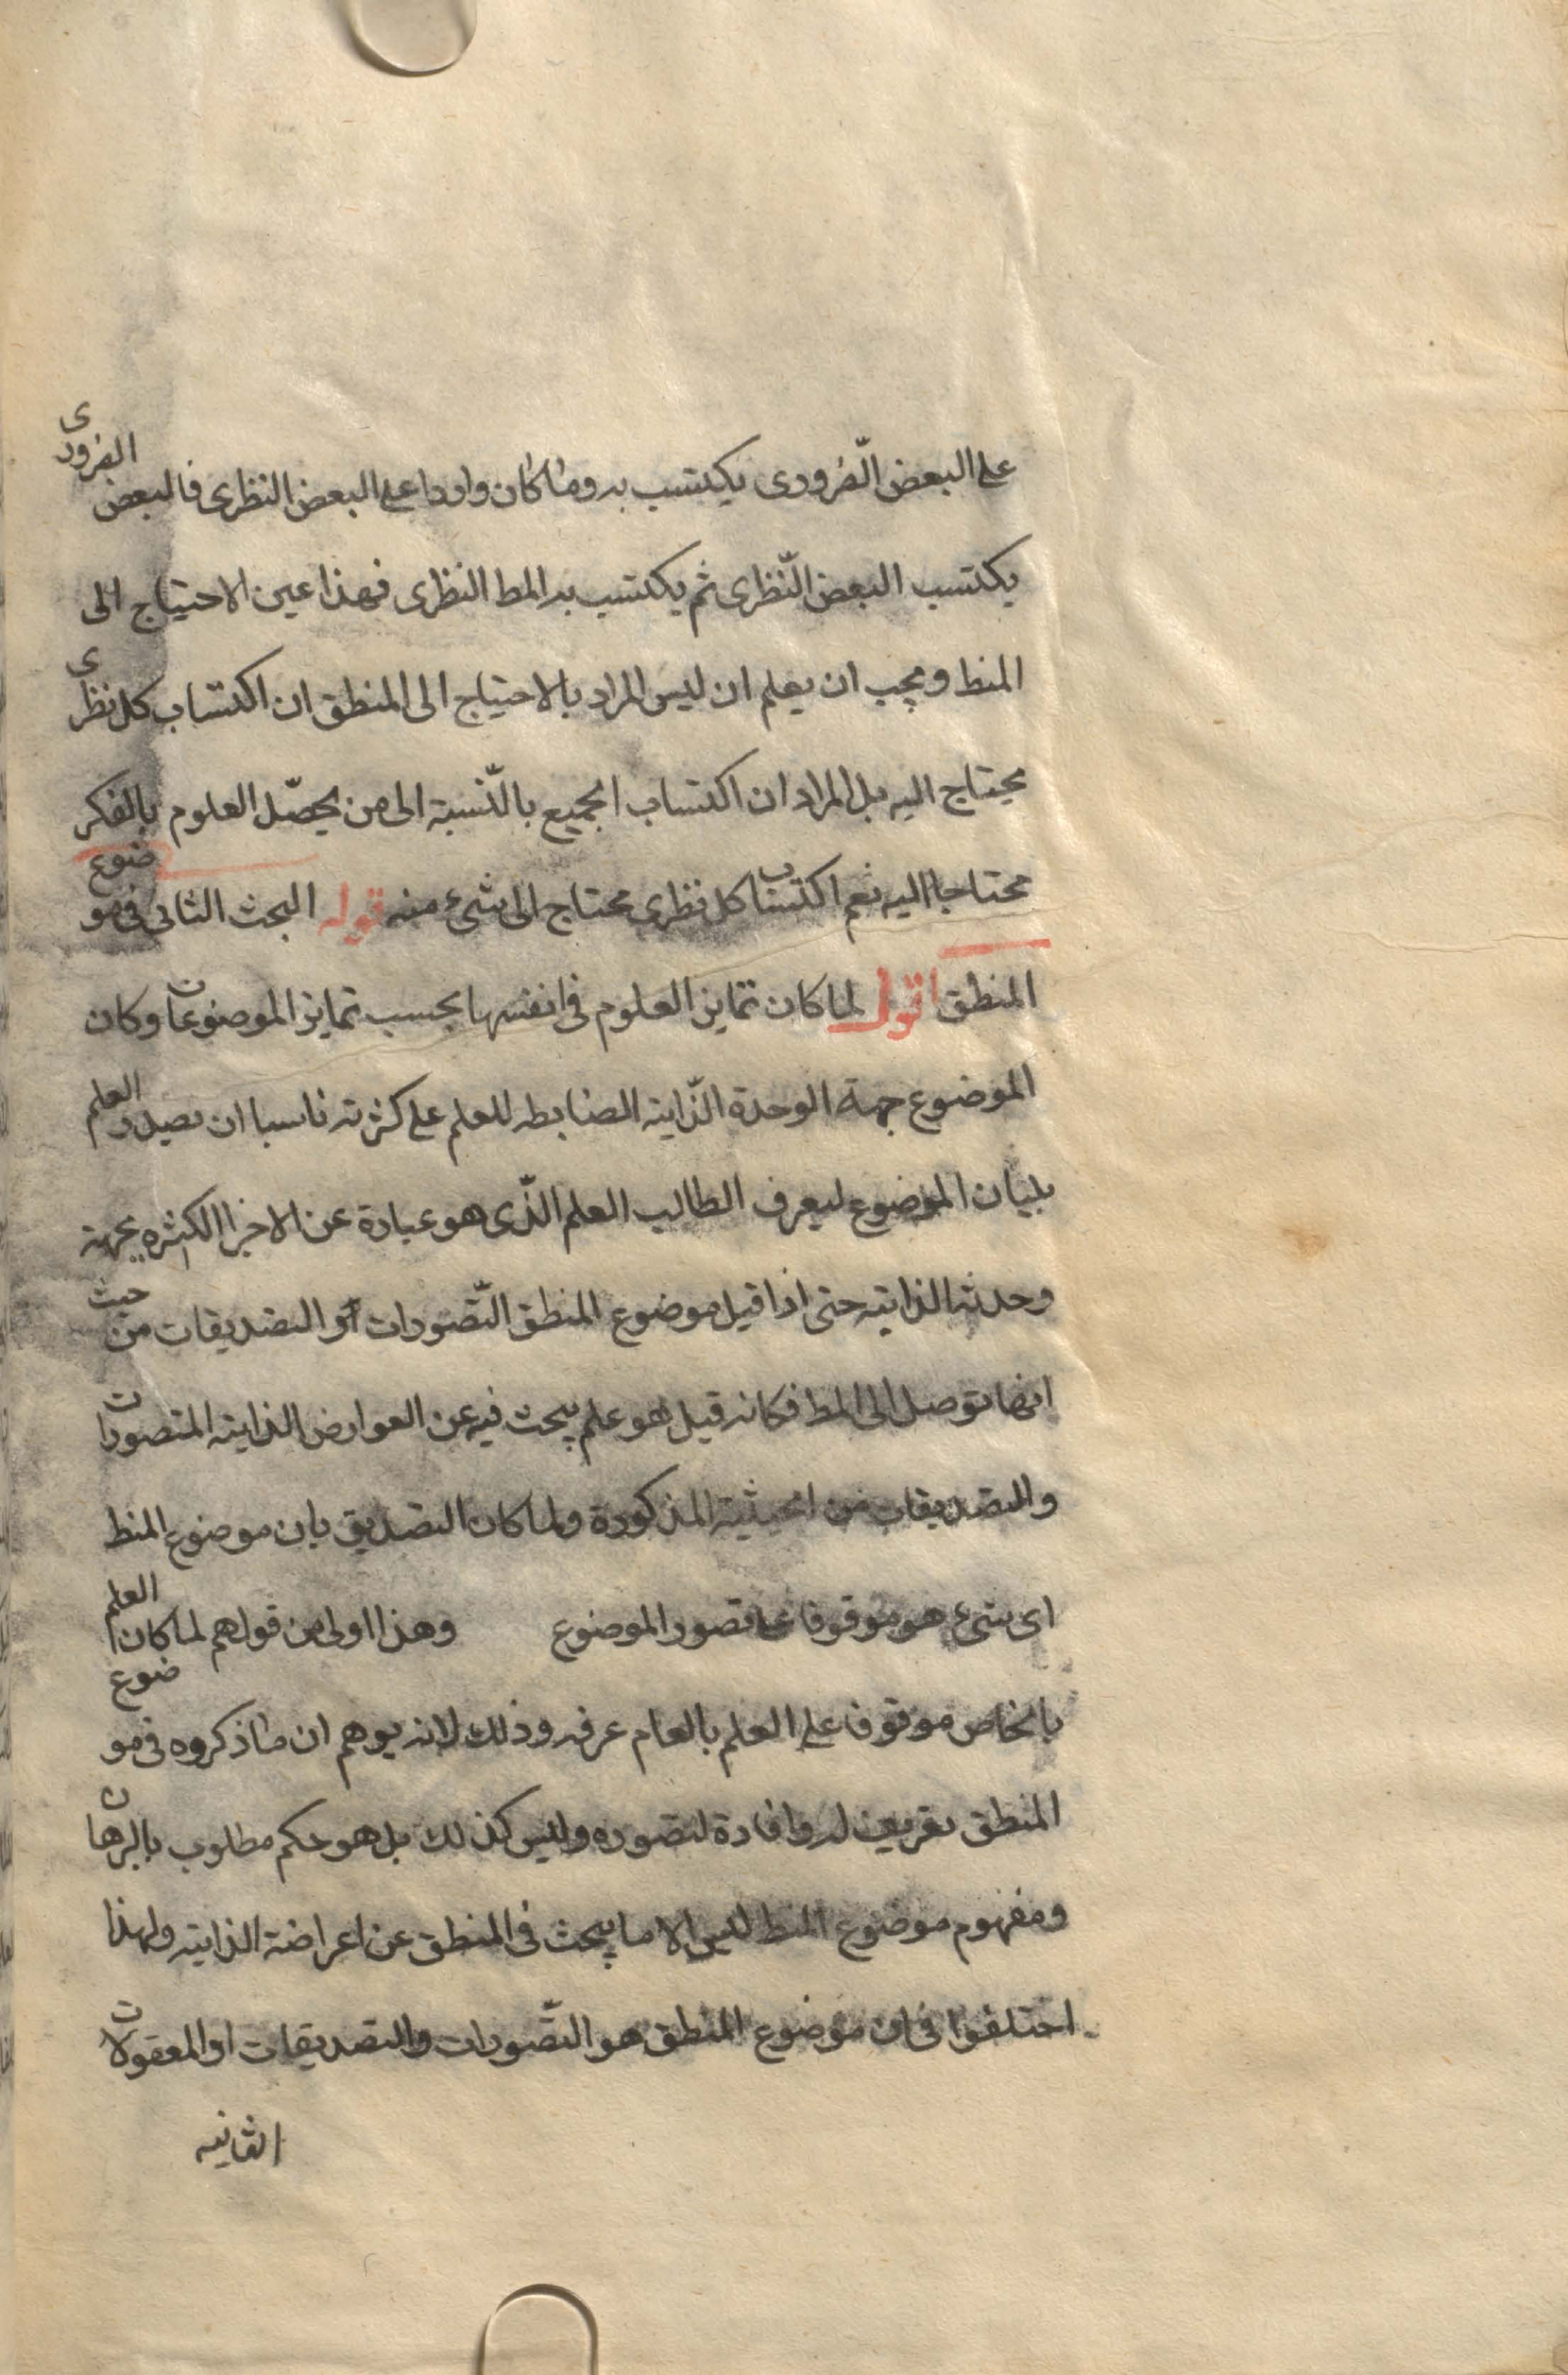 على البعض الضرورى يكتسب به وما كان واردا على البعض النظرى فالبعض الضرورى
يكتسب البعض النّظرى ثم يكتسب به المط النظرى فهذا عين الاحتياج الى
المنط ويجب ان يعلم ان ليس المراد بالاحتياج الى المنطق ان اكتساب كل نظرى
يحتاج اليه بل المراد ان اكتساب الجميع بالنّسبة الى من يحصّل العلوم بالفكر
محتاجا اليه نعم اكتساب كل نظرى محتاج الى شىء منه قوله البحث الثانى فى موضوع
المنطق اقول لما كان تمايز العلوم فى انفسها بحسب تمايز الموضوعات وكان
الموضوع جهة الوحدة الذّاتية الضابطه للعلم على كثرته ناسبا ان يصدر العلم
ببيان الموضوع ليعرف الطالب العلم الذّى هو عبارة عن الاخرا الكثيره بجهة
وحدته الذاتيه حتى اذا قيل موضوع المنطق التّصورات او التصديقات من حيث
انها توصل الى المط فكانه قيل هو علم يبحث فيه عن العوارض الذاتيه المتصورات
والتصديقات من الحيثية المذكورة ولما كان التصديق بان موضوع المنط
اى شىء هو موقوفا على تصور الموضوع وهذا اولى من قولهم لما كان العلم
بالخاص موقوفا على العلم بالعام عرفه وذلك لانه يوهم ان ما ذكروه فى موضوع
المنطق تعريف له وافادة لتصوره وليس كذلك بل هو حكم مطلوب بالبرهان
ومفهوم موضوع المنط ليس الا ما يبحث فى المنطق عن اعراضه الذاتيه ولهذا
اختلفوا فى ان موضوع المنطق هو التّصورات والتصديقات او المعقولات
الثانيه